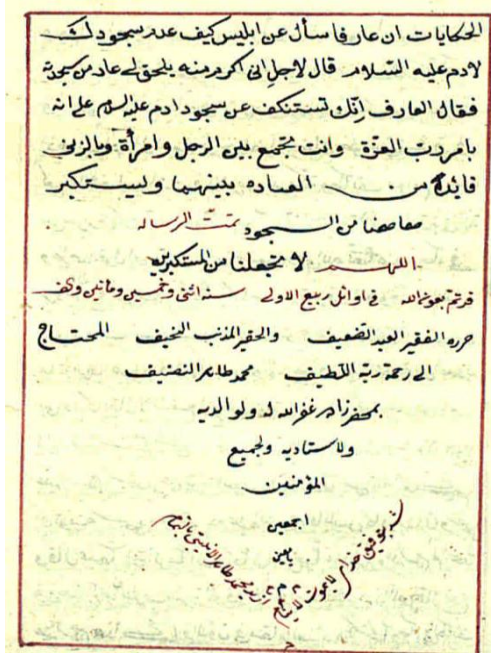 الحكايات ان عارفا سأل عن ابليس كيف عدم سجودك
لادم عليه السلام قال لاجل انى اكرم منه يلحق لى عار من سجدته
فقال العارف انك تستنكف عن سجود ادم عليه السلام على انه
بامر رب العزة وانت تجتمع بين الرجل وامرأة وبالزنى
فائدة من الفساد بينهما وليستكبر
من السجود تمت الرساله
اللهم لا تجعلنا من المستكبرين
قد تم بعون الله فى اوائل ربيع الاولى سنة اثنى وخمسين ومائتين والف
حرره الفقير العبد الضعيف والحقير المذنب النحيف المحتاج
الى رحمة ربه اللطيف محمد طاهر
غفر الله له ولوالديه
ولاستاديه ولجميع
المؤمنين
اجمعين